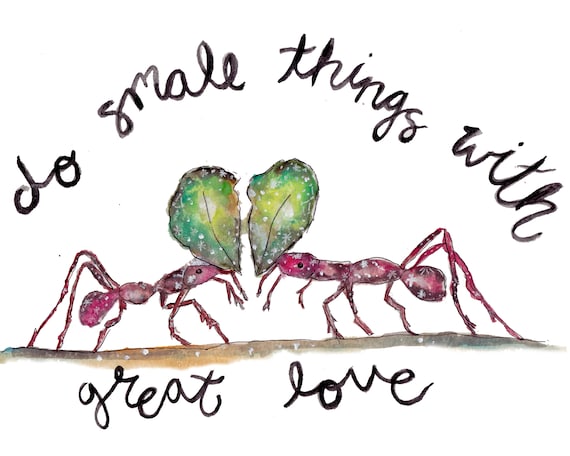 do small things with
great love